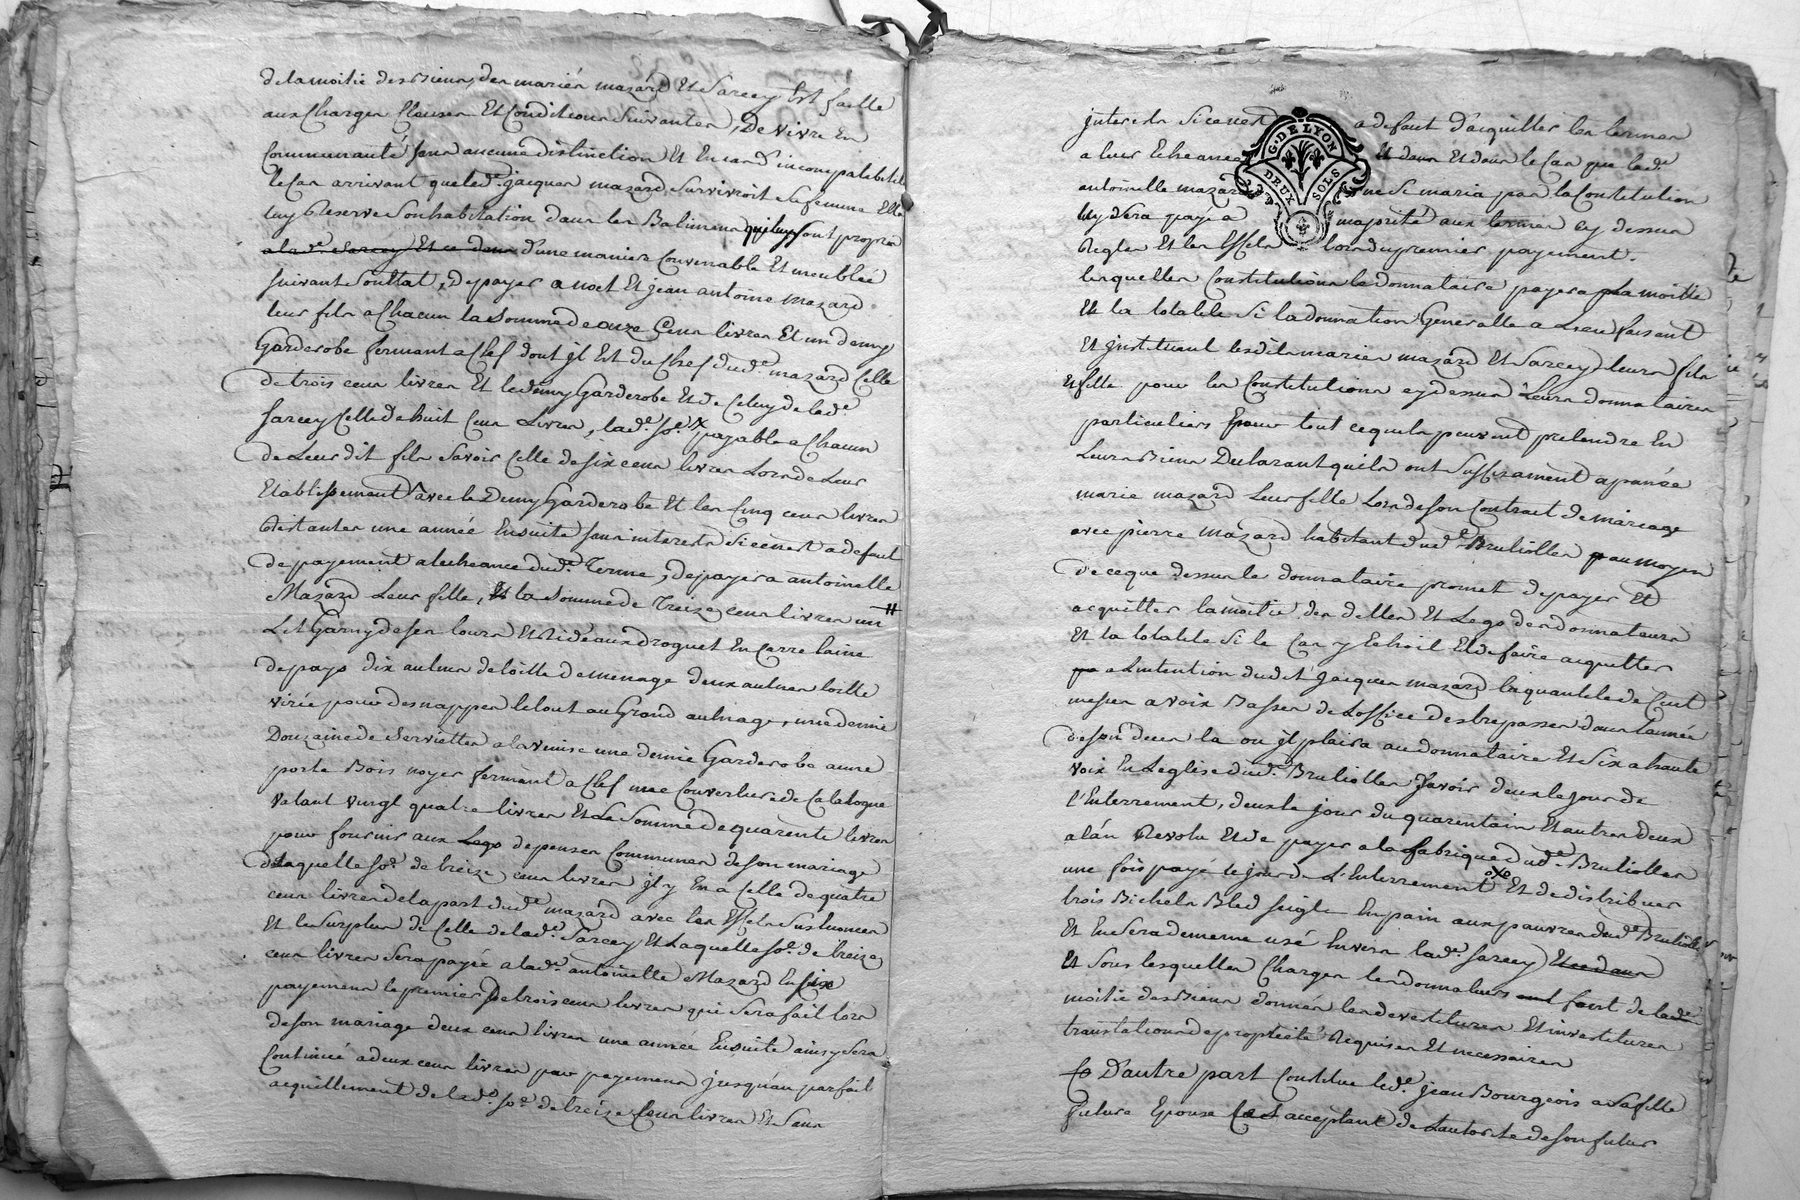 de la moitie des Biens des mariés mazard Et Sarcey Est faitte
aux Charges Clauses Et Conditions Suivantes, De vivre En
Communauté sans aucune distinction Et En cas d'incompatebilité
le Cas arrivant que led.e jacques mazard Survivroit sa femme Elle
luy Reserve Son habitation dans les Batimens qui luy sont propres
a la d.e Sarcey Et ce dans d'une maniere Convenable Et meublée
suivant Son Etat, De payer a noel Et jean antoine Mazard
leur fils a Chacun la Somme de onze Cens livres Et un demy
Garderobe fermant a Clef dont jl Est du Chef dud.e mazard Celle
de trois cens livres Et le demy Garderobe Et de Celuy de lad.e
Sarcey Celle de huit Cens Livres, lad.e so.e payable a Chacun
de Leur dit fils Savoir Celle de six cens livres Lors de Leur
Etablissement avec le Demy Garderobe Et les Cinq cens livres
Restantes une année Ensuite sans interests Si ce n'est a defaut
de payement a lecheance dud.e Terme, de payer a antoinette
Mazard Leur fille, Et la Somme de Treize cens livres un
Lit Garny de ses tours Et Rideaux droguet En serre laine
de pays dix aulnes de toille de menage deux aulnes toille
virée pour des nappes le tout au Grand aulnage, une demie
Douzaine de Serviettes a la venise une demie Garderobe a une
porte Bois noyer fermant a Clef une Couverture de Catalogne
Valant vingt quatre livres Et La Somme de quarente livres
pour fournir aux Lego depenses Communes de son mariage
de Laquelle so.e de treize cens livres jl y En a Celle de quatre
cens livres de la part dud.e mazard avec les Effets Susnommés
Et le Surplus de Celle de lad.e Sarcey Et Laquelle so.e de treize
cens livres Sera payée a lad.e antoinette Mazard En six
payemens le premier de trois cens livres qui Sera fait lors
de son mariage deux cens livres une année Ensuite ainsy Sera
Continué a deux cens livres par payemens jusqu'au parfait
acquittement de lad.e so.e de treize Cens livres Et Sans
G. DE LYON
DEUX SOLS
jnterests Si ce n'est a defaut d'acquitter les termes
a leur Echeance Et dans Et dans le Cas que lad.e
antoinette mazard ne Si maria pas la Constitution
luy Sera payé a majorité aux termes cy dessus
Regles Et les Effets lors du premier payement.
lesquelles Constitutions le Donnataire payera la moitie
Et la totalité Si la donnation Generalle a Lieu faisant
Et jnstituant lesdits mariés mazard Et Sarcey leurs fils
Et fille pour les Constitutions cy dessus Leurs donnataires
particuliers pour tout ce quils peuvent pretendre En
Leurs Biens Declarant quils ont Suffisament apanée
marie mazard Leur fille Lors de son Contrat de mariage
avec pierre mazard habitant dud.e Brullioles au moyen
de ce que dessus le donnataire promet de payer Et
acquitter la moitie des dettes Et Legs des donnateurs
Et la totalité Si le Cas y Echoit Et de faire acquitter
a Lintention dudit Jacques mazard la quantité de Cent
messes a voix Basses de Loffice des trepassés dans lannée
de son deces la ou jl plaira au donnataire Et Six a haute
voix En Leglise dud.e Brullioles Savoir deux le jour de
l'Enterrement, deux le jour du quarentain Et autres deux
a l'an Revolu Et de payer a la fabrique dud.e Brullioles
une fois payé le jour de L'Enterrement Et de distribuer
trois Bichets Bled seigle En pain aux pauvres dud.e Brullioles
Et En Sera de meme usé Envers lad.e Sarcey Et ce dans
Et Sous lesquelles Charges les donnateurs ont font de lad.e
moitie des Biens donnés les devestitures Et investitures
translations de proprieté Requises Et necessaires
D'autre part Constitue led.e jean Bourgeois a sa fille
future Epouse acceptant de Lautorité de son futur